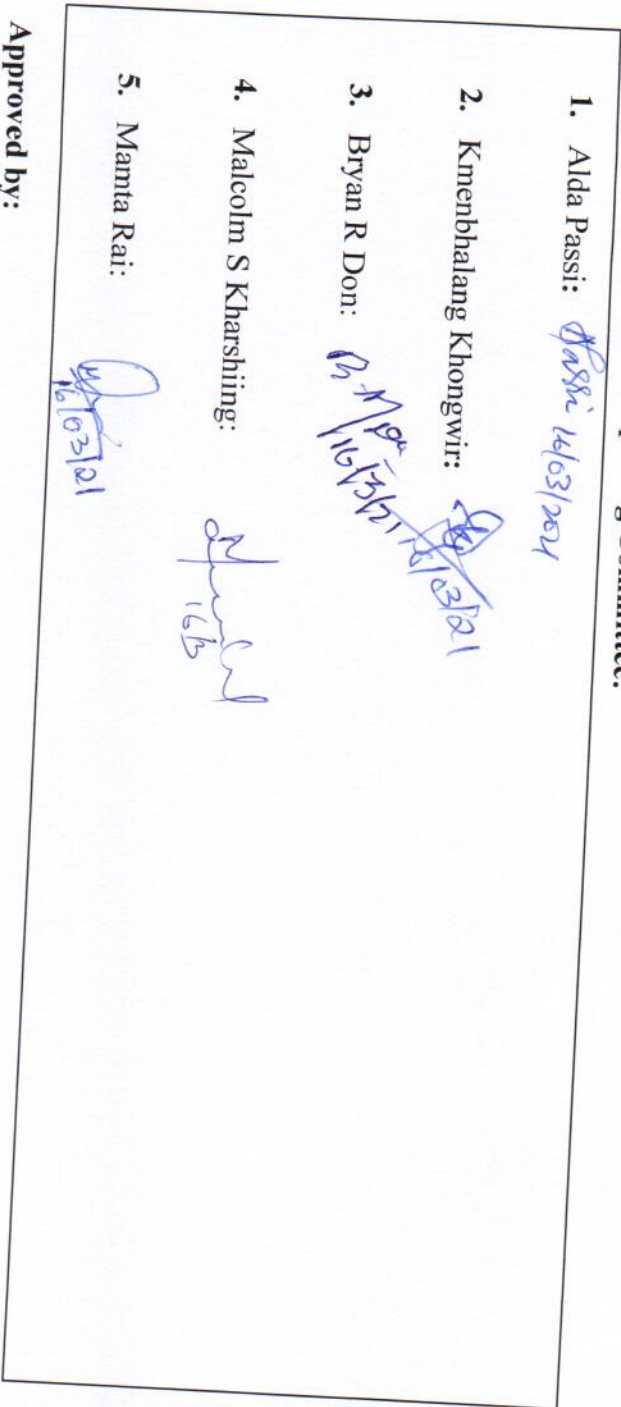 Committee:
1. Alda Passi: Passi 16/03/2021
2. Kmenbhalang Khongwir: 16/03/21
3. Bryan R Don: 16/3/21
4. Malcolm S Kharshiing: 16/3
5. Mamta Rai: 16/03/21
Approved by: